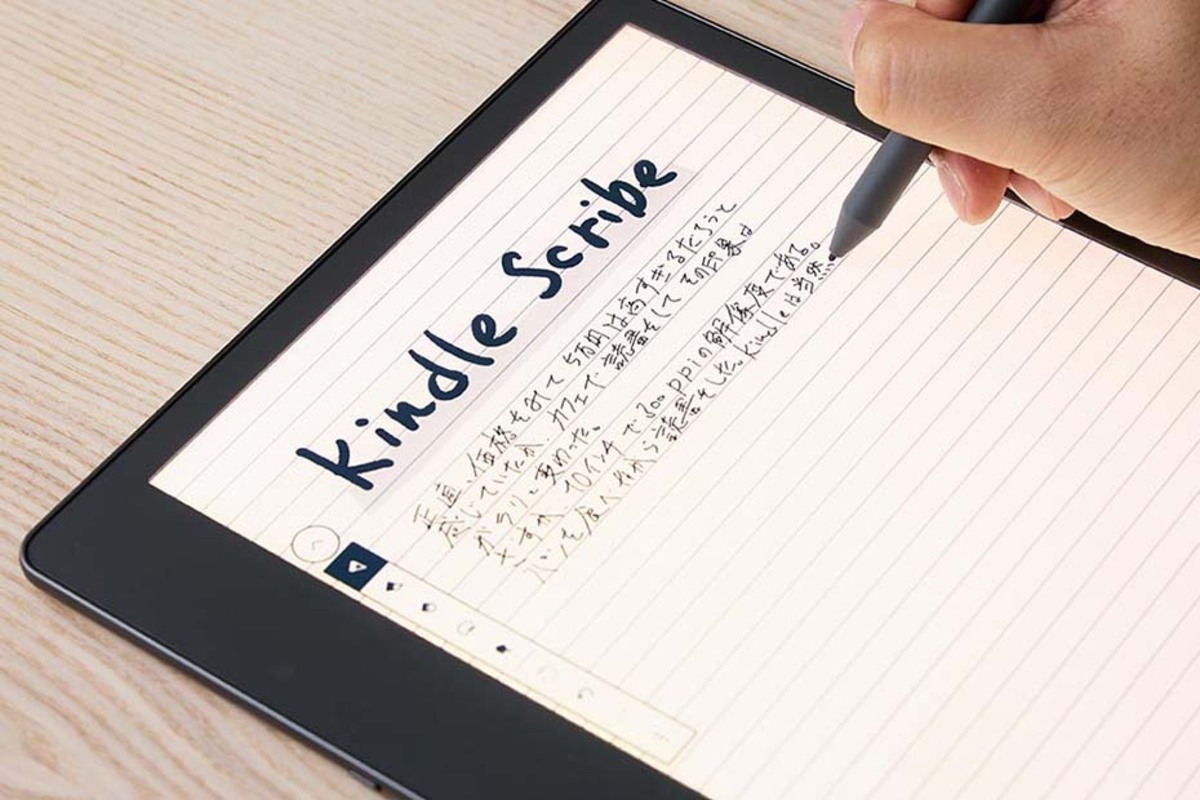 Kindle Scribe
正直、価格をみて5万円は高すぎるだろうと
感じていたが、カフェで読書をしてその印象は
ガラリと変わった。
さすが、10インチで300ppiの解像度である。
パンを食べながら読書をした。Kindleは当然…